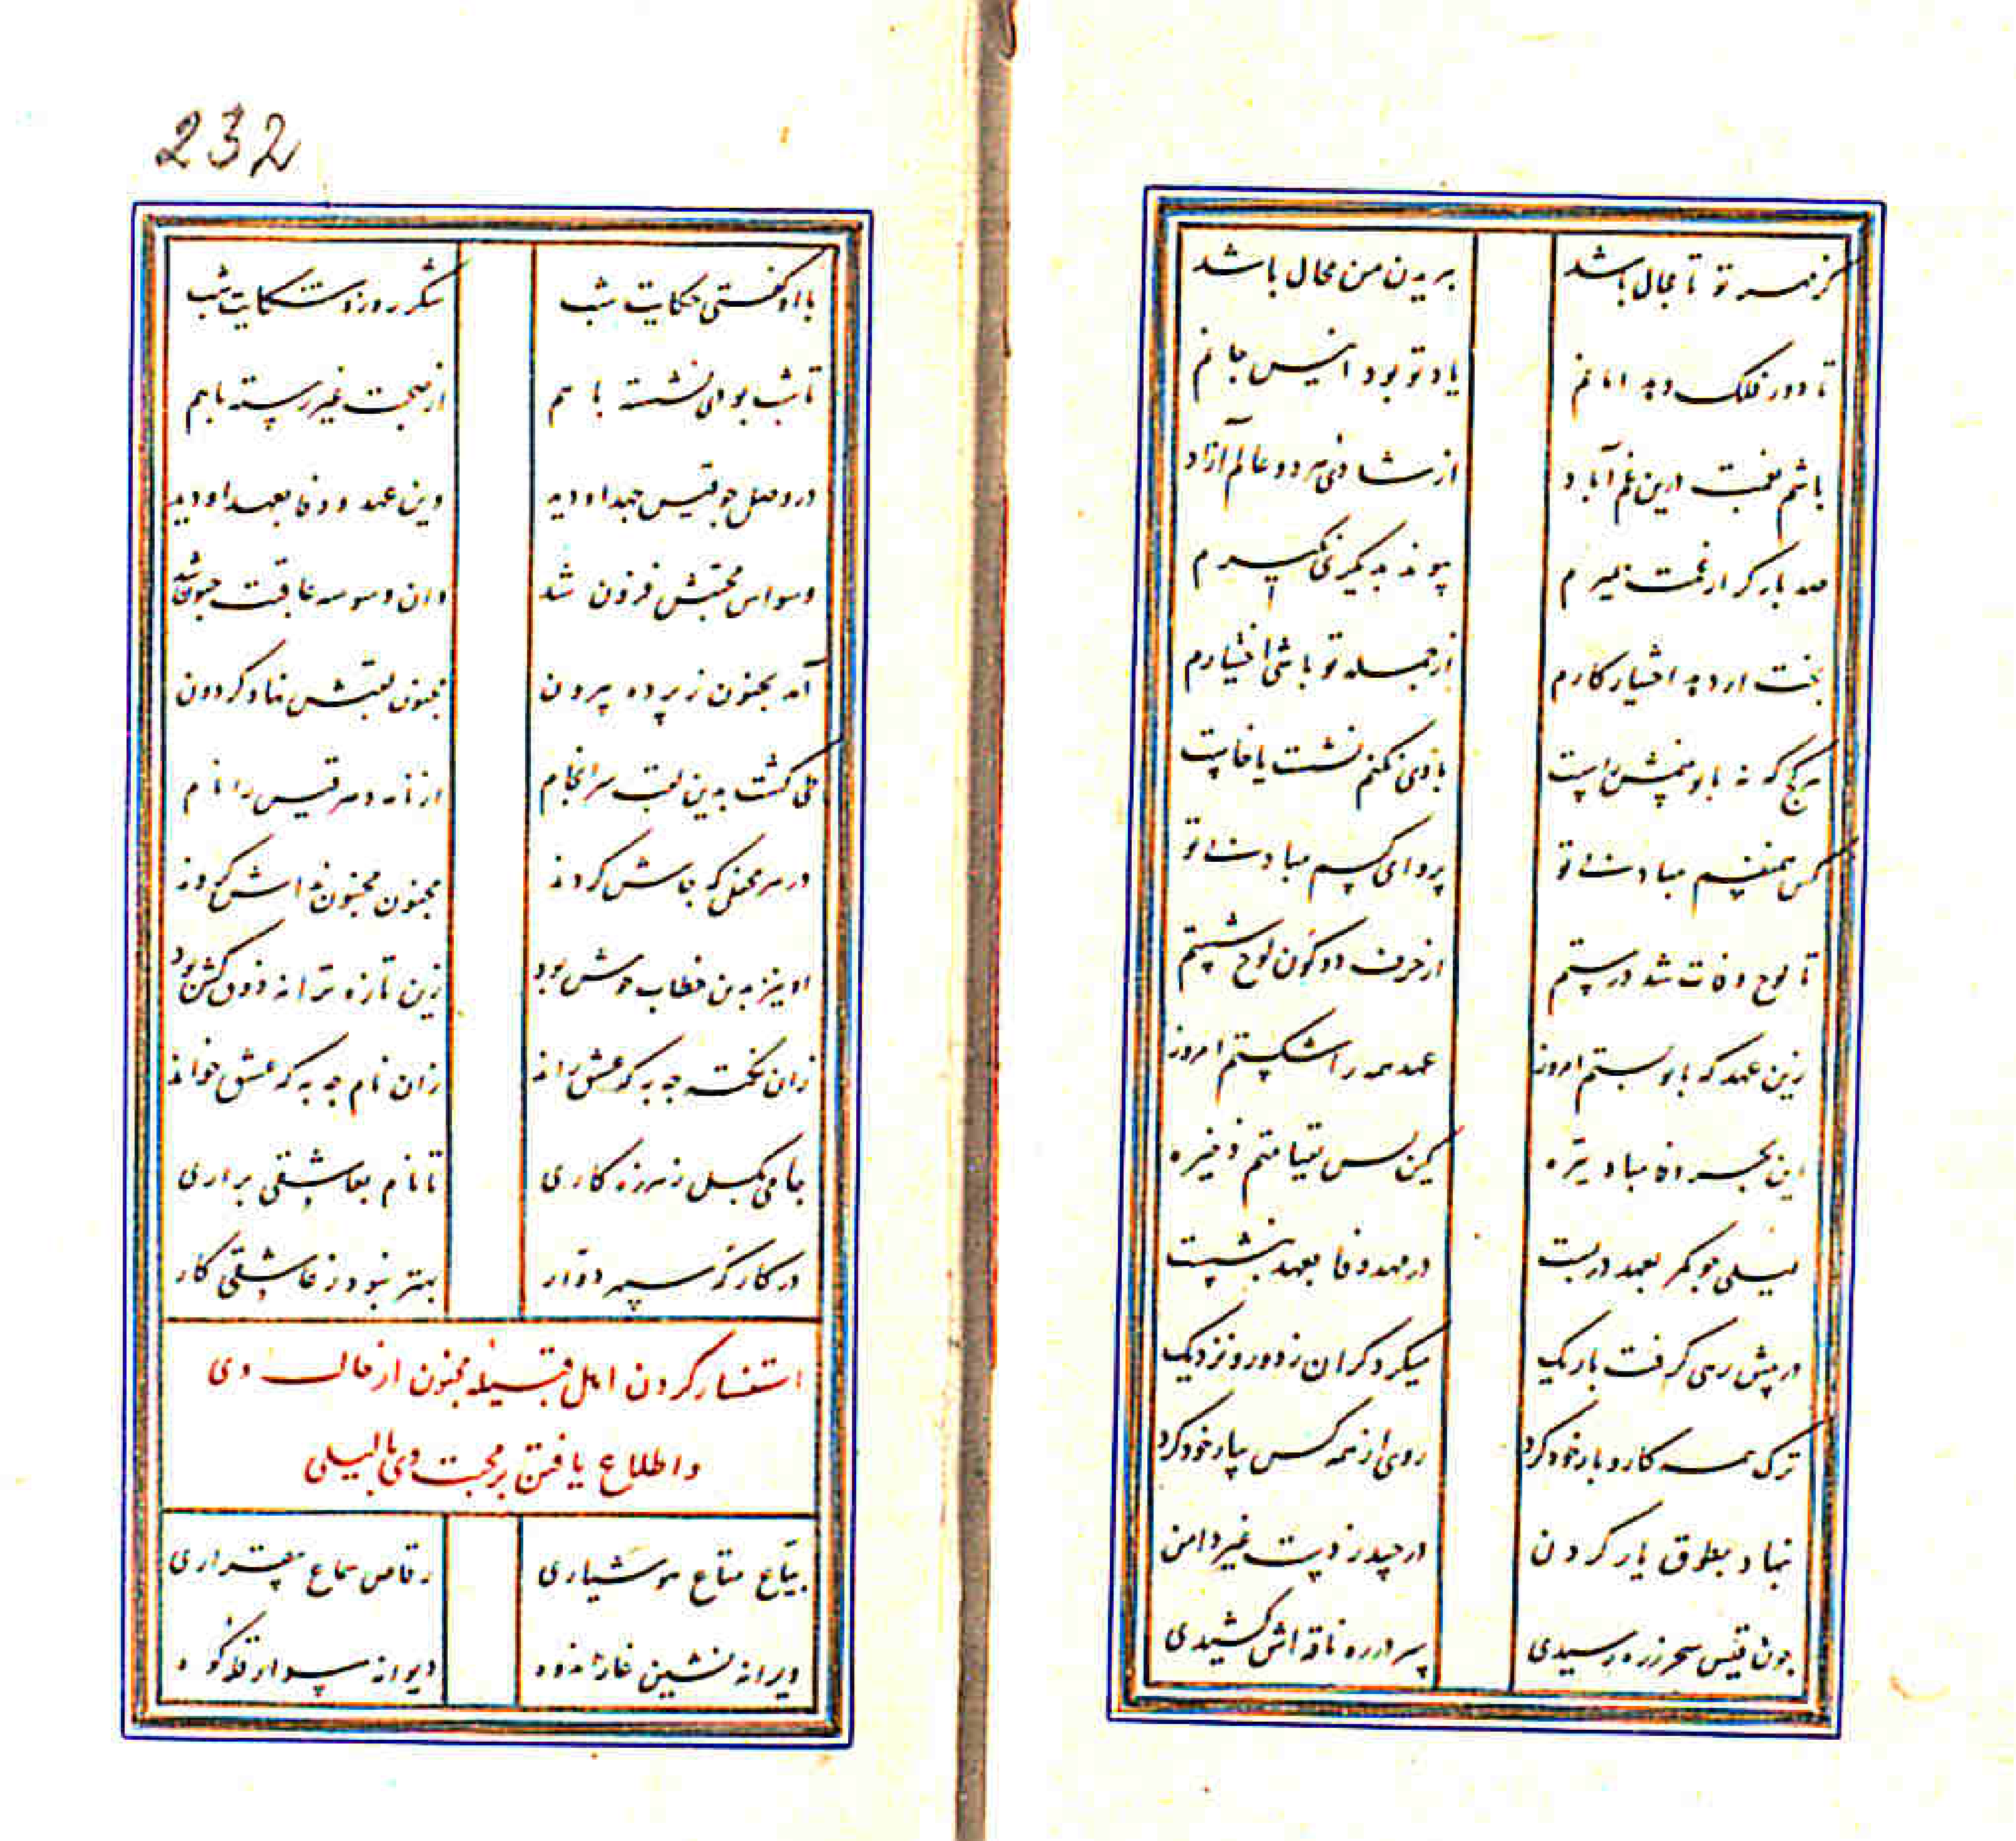 232
کز مهر تو تا مجال باشد
بریدن من محال باشد
تا دور فلک دهد امانم
یاد تو بود انیس جانم
باشم بغمت درین غم آباد
از شادی هر دو عالم آزاد
صد بار گر از غمت بمیرم
پیوند به دیگری نگیرم
بخت ار دهد اختیار کارم
از جمله تو باشی اختیارم
هر کج که نه با تو همنشین است
بازی نکنم نشست یا خاست
کس همنفسم مباد تا تو
پروای کسم مباد تا تو
تا لوح وفات شد درستم
از حرف دو کون لوح شستم
زین عهد که با تو بستم امروز
عهد همه را شکستم امروز
این بحر وفا مباد تیره
کین بس بقیامتم ذخیره
لیلی چو کمر بعهد در بست
در مهد وفا بعهد بنشست
در پیش رهی گرفت باریک
میکرد کران ز دور و نزدیک
ترک همه کار و بار خود کرد
روی از همه کس بیار خود کرد
بنهاد بطوق یار گردن
در چید ز دست غیر دامن
چون قیس سحر ز ره رسیدی
سر در ره ناقه اش کشیدی
با او گفتی حکایت شب
شکر روز و شکایت شب
تا شب بودی نشسته با هم
از صحبت غیر رسته با هم
در وصل چو قیس جهد او دید
وین عهد و وفا بعهد او دید
وسواس محبتش فزون شد
وان وسوسه عاقبت جنون شد
آمد بجنون ز پرده بیرون
مجنون لقبش نهاد گردون
طی گشت بدین لقب سرانجام
از نامه دهر قیس را نام
در هر محفل که جاش کردند
مجنون مجنون نداش کردند
او نیز بدین خطاب خوش بود
زین تازه ترانه ذوق کش بود
زان نکته چه به که عشق راند
زان نام چه به که عشق خواند
جامی بگسل ز هر زه کاری
تا نام بعاشقی براری
در کارگه سپهر دوار
بهتر نبود ز عاشقی کار
استفسار کردن اهل قبیله مجنون از حال وی
و اطلاع یافتن بر محبت وی با لیلی
بیاع متاع هوشیاری
رقاص سماع بیقراری
ویرانه نشین خانه اندوه
دیوانه سوار قله کوه